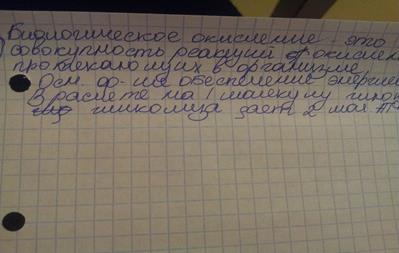 Биологическое окисление - это
совокупность реакций окислени
протекающих в организме.
Осн. ф-ия обеспечение энергие
В расчете на 1 молекулу глюко
гликолиз дает 2 мол. АТФ